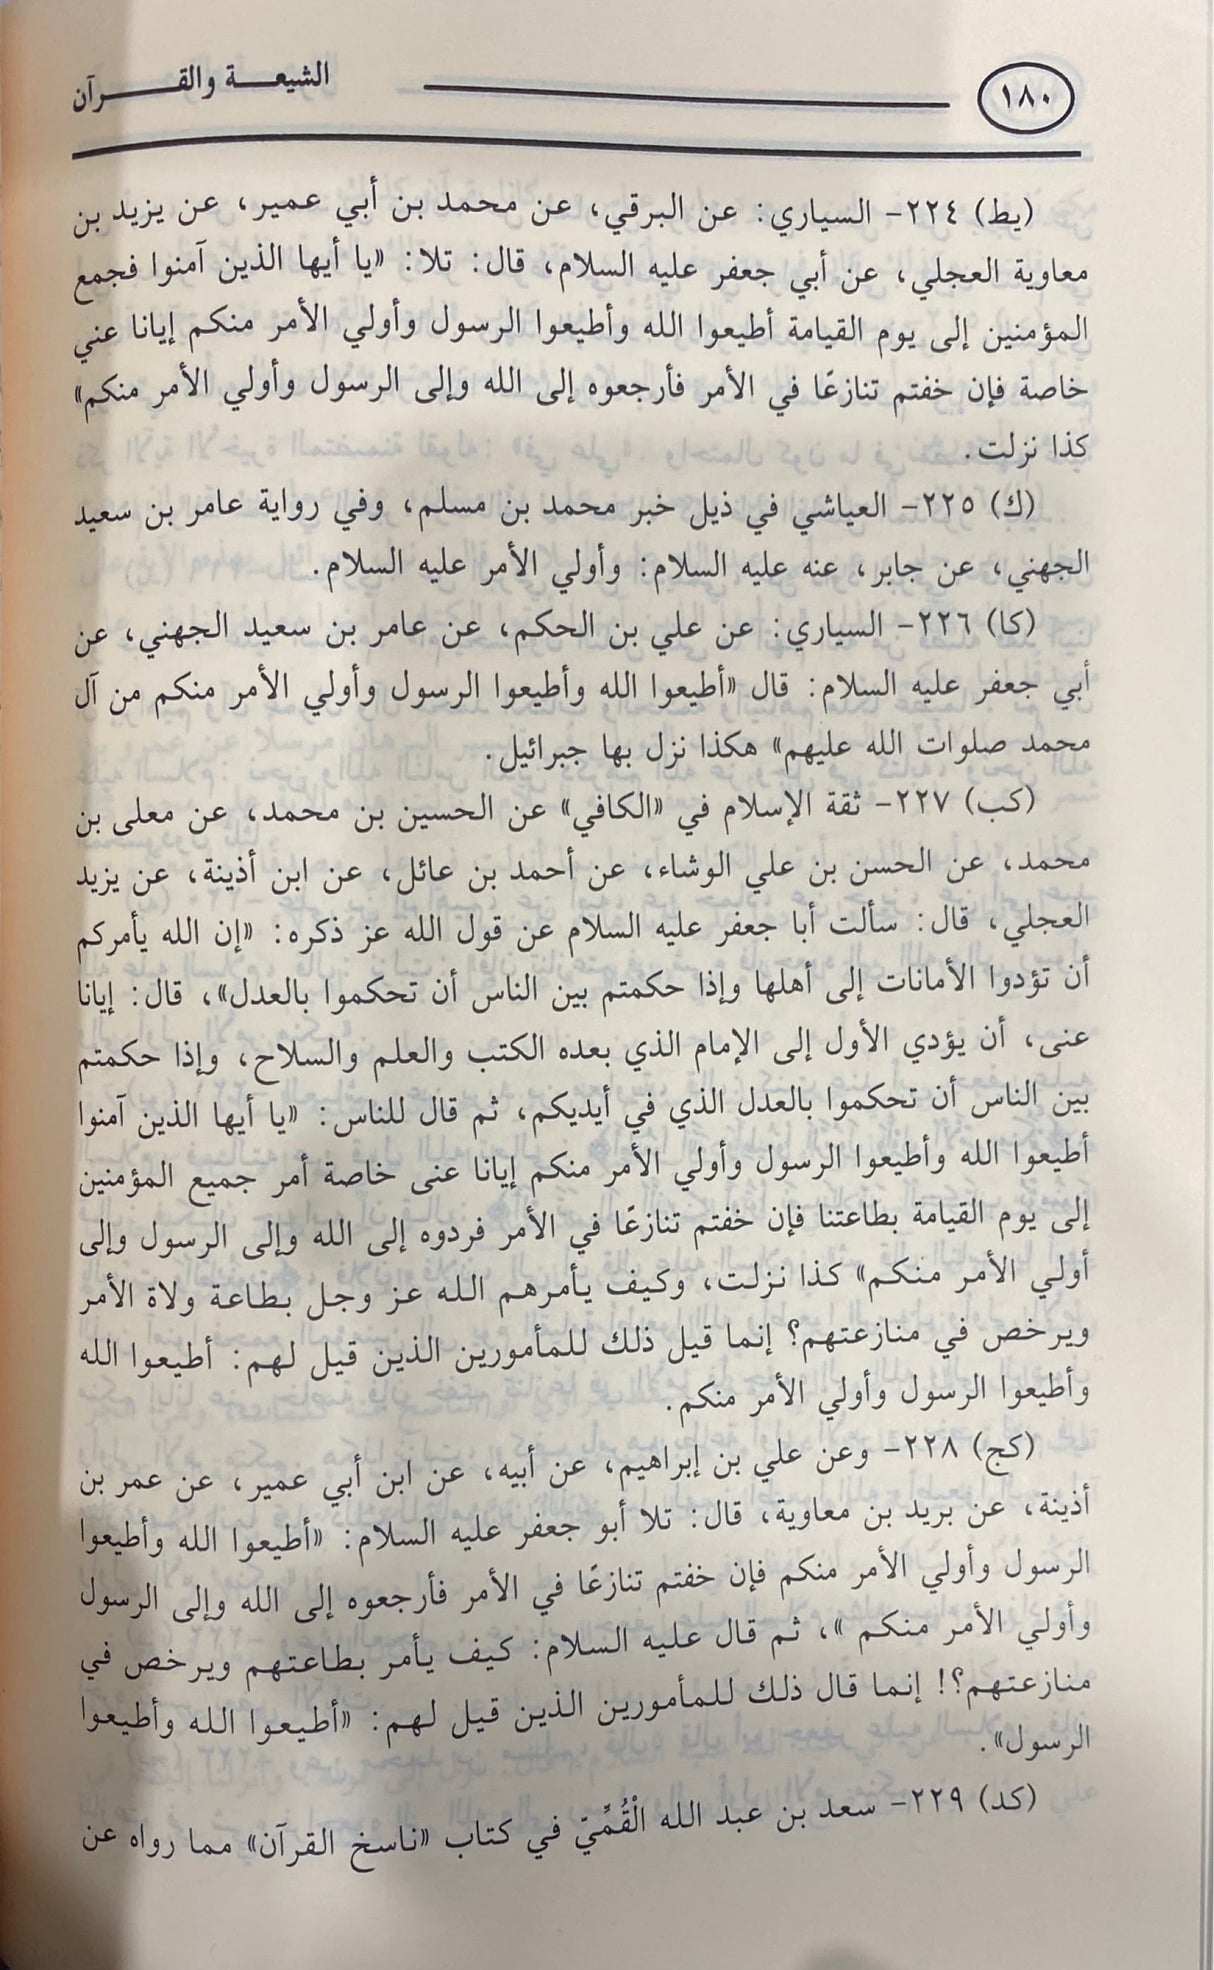 ١٨٠
الشيعـــة والقـــرآن
(يط) ٢٢٤- السياري: عن البرقي، عن محمد بن أبي عمير، عن يزيد بن
معاوية العجلي، عن أبي جعفر عليه السلام، قال: تلا: «يا أيها الذين آمنوا فجمع
المؤمنين إلى يوم القيامة أطيعوا الله وأطيعوا الرسول وأولي الأمر منكم إيانا عني
خاصة فإن خفتم تنازعًا في الأمر فأرجعوه إلى الله وإلى الرسول وأولي الأمر منكم»
كذا نزلت.
(ك) ٢٢٥- العياشي في ذيل خبر محمد بن مسلم، وفي رواية عامر بن سعيد
الجهني، عن جابر، عنه عليه السلام: وأولي الأمر عليه السلام.
(كا) ٢٢٦- السياري: عن علي بن الحكم، عن عامر بن سعيد الجهني، عن
أبي جعفر عليه السلام: قال «أطيعوا الله وأطيعوا الرسول وأولي الأمر منكم من آل
محمد صلوات الله عليهم» هكذا نزل بها جبرائيل.
(كب) ٢٢٧- ثقة الإسلام في «الكافي» عن الحسين بن محمد، عن معلى بن
محمد، عن الحسن بن علي الوشاء، عن أحمد بن عائل، عن ابن أذينة، عن يزيد
العجلي، قال: سألت أبا جعفر عليه السلام عن قول الله عز ذكره: «إن الله يأمركم
أن تؤدوا الأمانات إلى أهلها وإذا حكمتم بين الناس أن تحكموا بالعدل»، قال: إيانا
عنى، أن يؤدي الأول إلى الإمام الذي بعده الكتب والعلم والسلاح، وإذا حكمتم
بين الناس أن تحكموا بالعدل الذي في أيديكم، ثم قال للناس: «يا أيها الذين آمنوا
أطيعوا الله وأطيعوا الرسول وأولي الأمر منكم إيانا عنى خاصة أمر جميع المؤمنين
إلى يوم القيامة بطاعتنا فإن خفتم تنازعًا في الأمر فردوه إلى الله وإلى الرسول وإلى
أولي الأمر منكم» كذا نزلت، وكيف يأمرهم الله عز وجل بطاعة ولاة الأمر
ويرخص في منازعتهم؟ إنما قيل ذلك للمأمورين الذين قيل لهم: أطيعوا الله
وأطيعوا الرسول وأولي الأمر منكم.
(كج) ٢٢٨- وعن علي بن إبراهيم، عن أبيه، عن ابن أبي عمير، عن عمر بن
أذينة، عن بريد بن معاوية، قال: تلا أبو جعفر عليه السلام: «أطيعوا الله وأطيعوا
الرسول وأولي الأمر منكم فإن خفتم تنازعًا في الأمر فأرجعوه إلى الله وإلى الرسول
وأولي الأمر منكم »، ثم قال عليه السلام: كيف يأمر بطاعتهم ويرخص في
منازعتهم؟! إنما قال ذلك للمأمورين الذين قيل لهم: «أطيعوا الله وأطيعوا
الرسول».
(كد) ٢٢٩- سعد بن عبد الله الْقُمِّيّ في كتاب «ناسخ القرآن» مما رواه عن